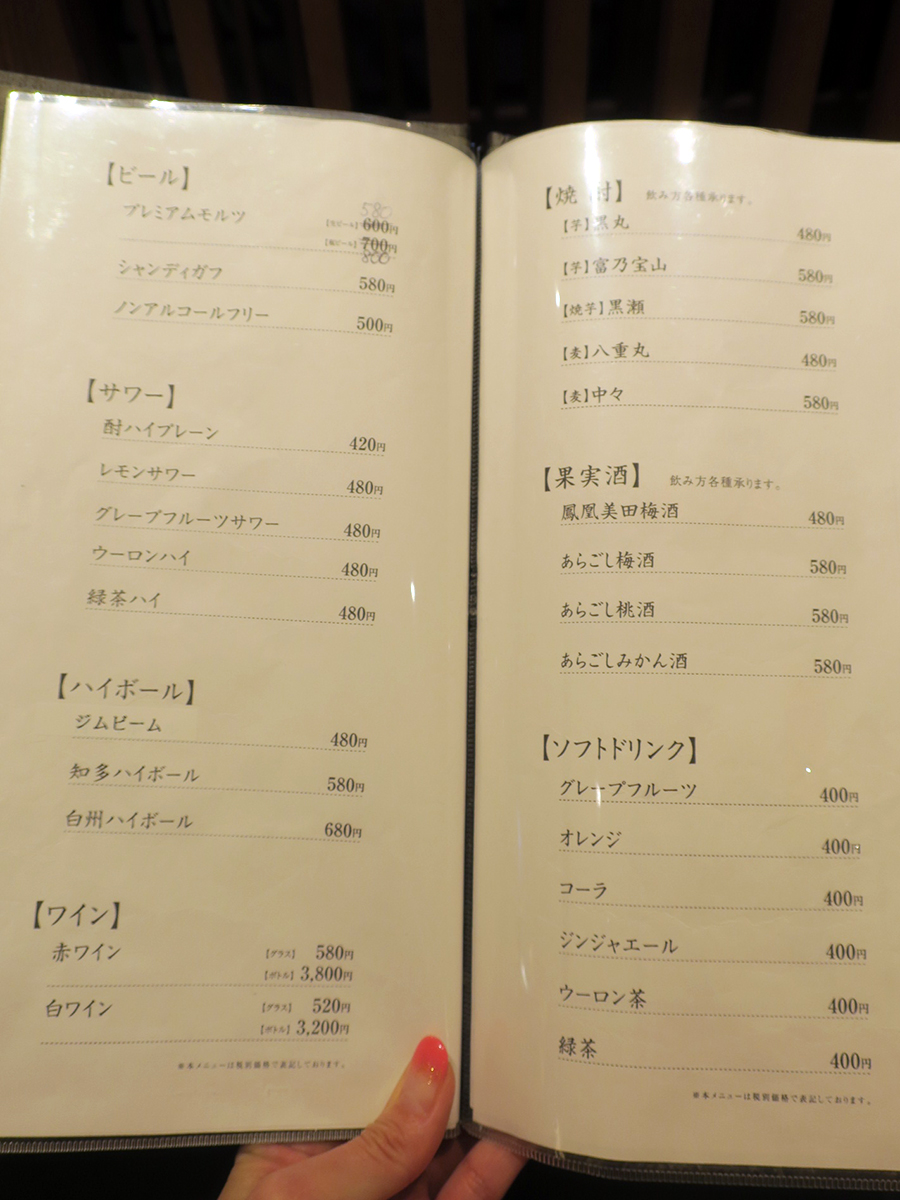 【ビール】
プレミアムモルツ
580
【生ビール】600円
【瓶ビール】700円
800
シャンディガフ 580円
ノンアルコールフリー 500円
【サワー】
酎ハイプレーン 420円
レモンサワー 480円
グレープフルーツサワー 480円
ウーロンハイ 480円
緑茶ハイ 480円
【ハイボール】
ジムビーム 480円
知多ハイボール 580円
白州ハイボール 680円
【ワイン】
赤ワイン 【グラス】 580円
【ボトル】 3,800円
白ワイン 【グラス】 520円
【ボトル】 3,200円
※本メニューは税別価格で表記しております。
【焼酎】 飲み方各種承ります。
【芋】黒丸 480円
【芋】富乃宝山 580円
【焼芋】黒瀬 580円
【麦】八重丸 480円
【麦】中々 580円
【果実酒】 飲み方各種承ります。
鳳凰美田梅酒 480円
あらごし梅酒 580円
あらごし桃酒 580円
あらごしみかん酒 580円
【ソフトドリンク】
グレープフルーツ 400円
オレンジ 400円
コーラ 400円
ジンジャエール 400円
ウーロン茶 400円
緑茶 400円
※本メニューは税別価格で表記しております。